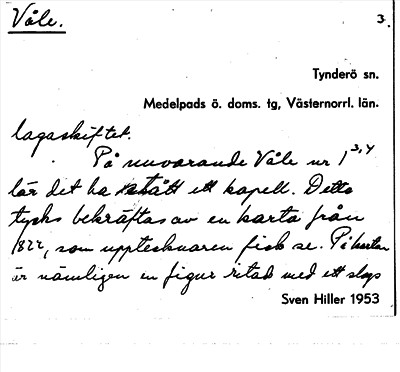 Våle. 3.
Tynderö sn.
Medelpads ö. doms. tg, Västernorrl. län.
lagaskiftet.
På nuvarande Våle nr 1 3,4
lär det ha stått ett kapell. Detta
tycks bekräftas av en karta från
1822, som upptecknaren fick se. På kartan
är nämligen en figur ritad med ett slags
Sven Hiller 1953